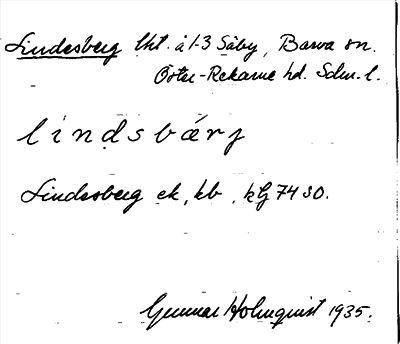 Lindesberg lht. å 1-3 Säby, Barva sn.
Öster-Rekarne hd. Sdm. l.
lindsbärj
Lindesberg ek, kb, kG 74 SO.
Gunnar Holmquist 1935.